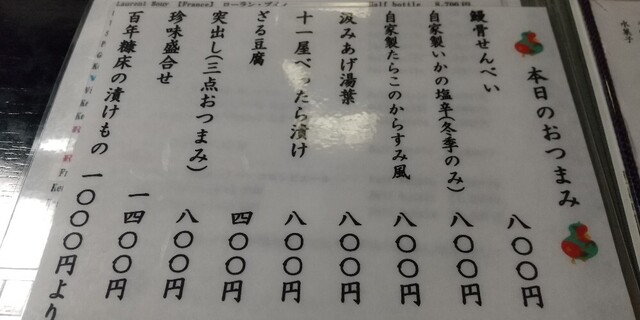 本日のおつまみ
鰻骨せんべい 八〇〇円
自家製いかの塩辛(冬季のみ) 八〇〇円
自家製たらこのからすみ風 八〇〇円
汲みあげ湯葉 八〇〇円
十一屋べったら漬け 八〇〇円
ざる豆腐 四〇〇円
突出し(三点おつまみ) 八〇〇円
珍味盛合せ 一四〇〇円
百年糠床の漬けもの 一〇〇〇円より
水菓子
[France]
Half bottle